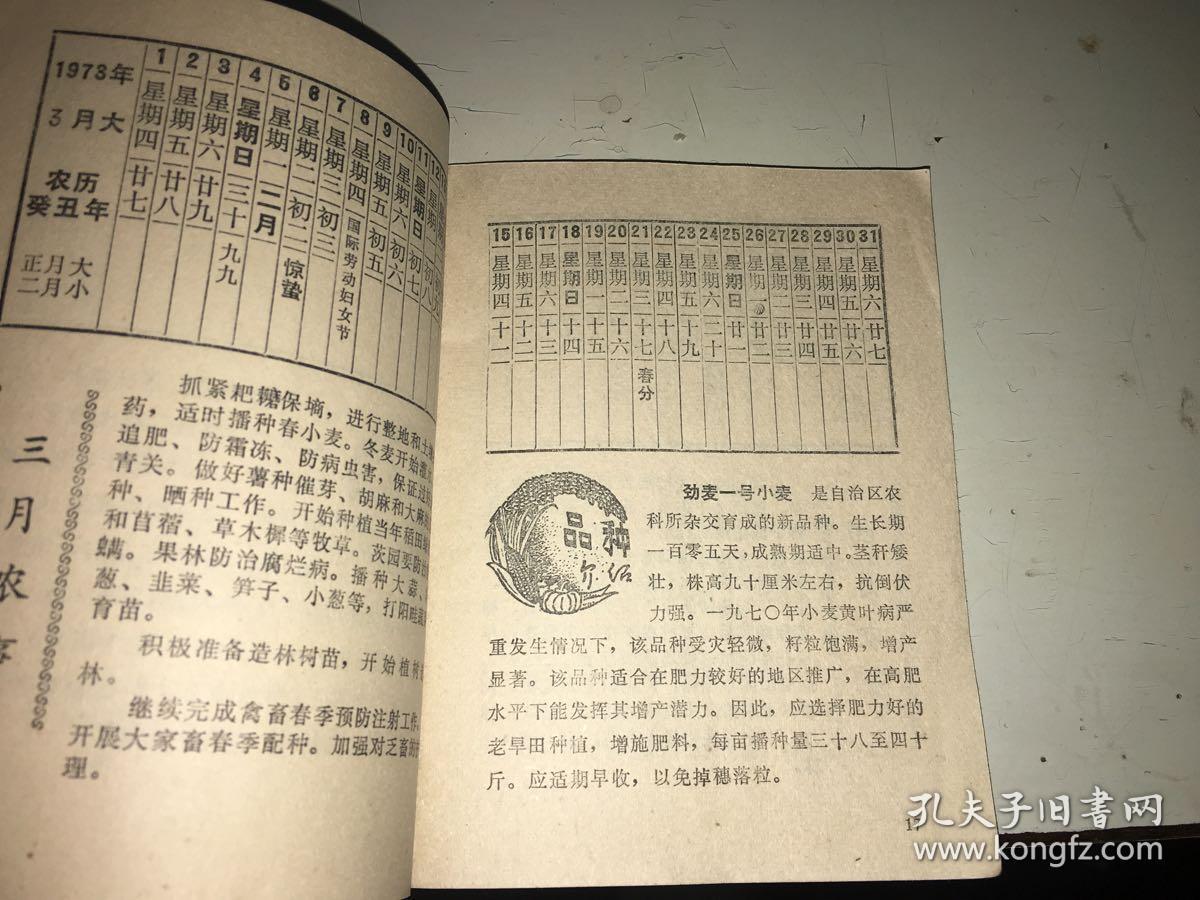 1973年
3月大
农历
癸丑年
正月大
二月小
1 星期四 廿七
2 星期五 廿八
3 星期六 廿九
4 星期日 三十 九九
5 星期一 二月
6 星期二 初二 惊蛰
7 星期三 初三
8 星期四 国际劳动妇女节
9 星期五 初五
10 星期六 初六
11 星期日 初七
12 初八
三月农事
抓紧耙耱保墒，进行整地和土壤
药，适时播种春小麦。冬麦开始灌
追肥、防霜冻、防病虫害，保证
青关。做好薯种催芽、胡麻和大麻
种、晒种工作。开始种植当年稻田绿
和苜蓿、草木樨等牧草。茨园要防治
螨。果林防治腐烂病。播种大蒜、
葱、韭菜、笋子、小葱等，打阳畦
育苗。
积极准备造林树苗，开始植树
林。
继续完成禽畜春季预防注射工作。
开展大家畜春季配种。加强对乏畜的
理。
15 星期四 十一
16 星期五 十二
17 星期六 十三
18 星期日 十四
19 星期一 十五
20 星期二 十六
21 星期三 十七 春分
22 星期四 十八
23 星期五 十九
24 星期六 二十
25 星期日 廿一
26 星期一 廿二
27 星期二 廿三
28 星期三 廿四
29 星期四 廿五
30 星期五 廿六
31 星期六 廿七
品种
介绍
劲麦一号小麦 是自治区农
科所杂交育成的新品种。生长期
一百零五天，成熟期适中。茎秆矮
壮，株高九十厘米左右，抗倒伏
力强。一九七〇年小麦黄叶病严
重发生情况下，该品种受灾轻微，籽粒饱满，增产
显著。该品种适合在肥力较好的地区推广，在高肥
水平下能发挥其增产潜力。因此，应选择肥力好的
老旱田种植，增施肥料，每亩播种量三十八至四十
斤。应适期早收，以免掉穗落粒。
17
孔夫子旧书网
www.kongfz.com